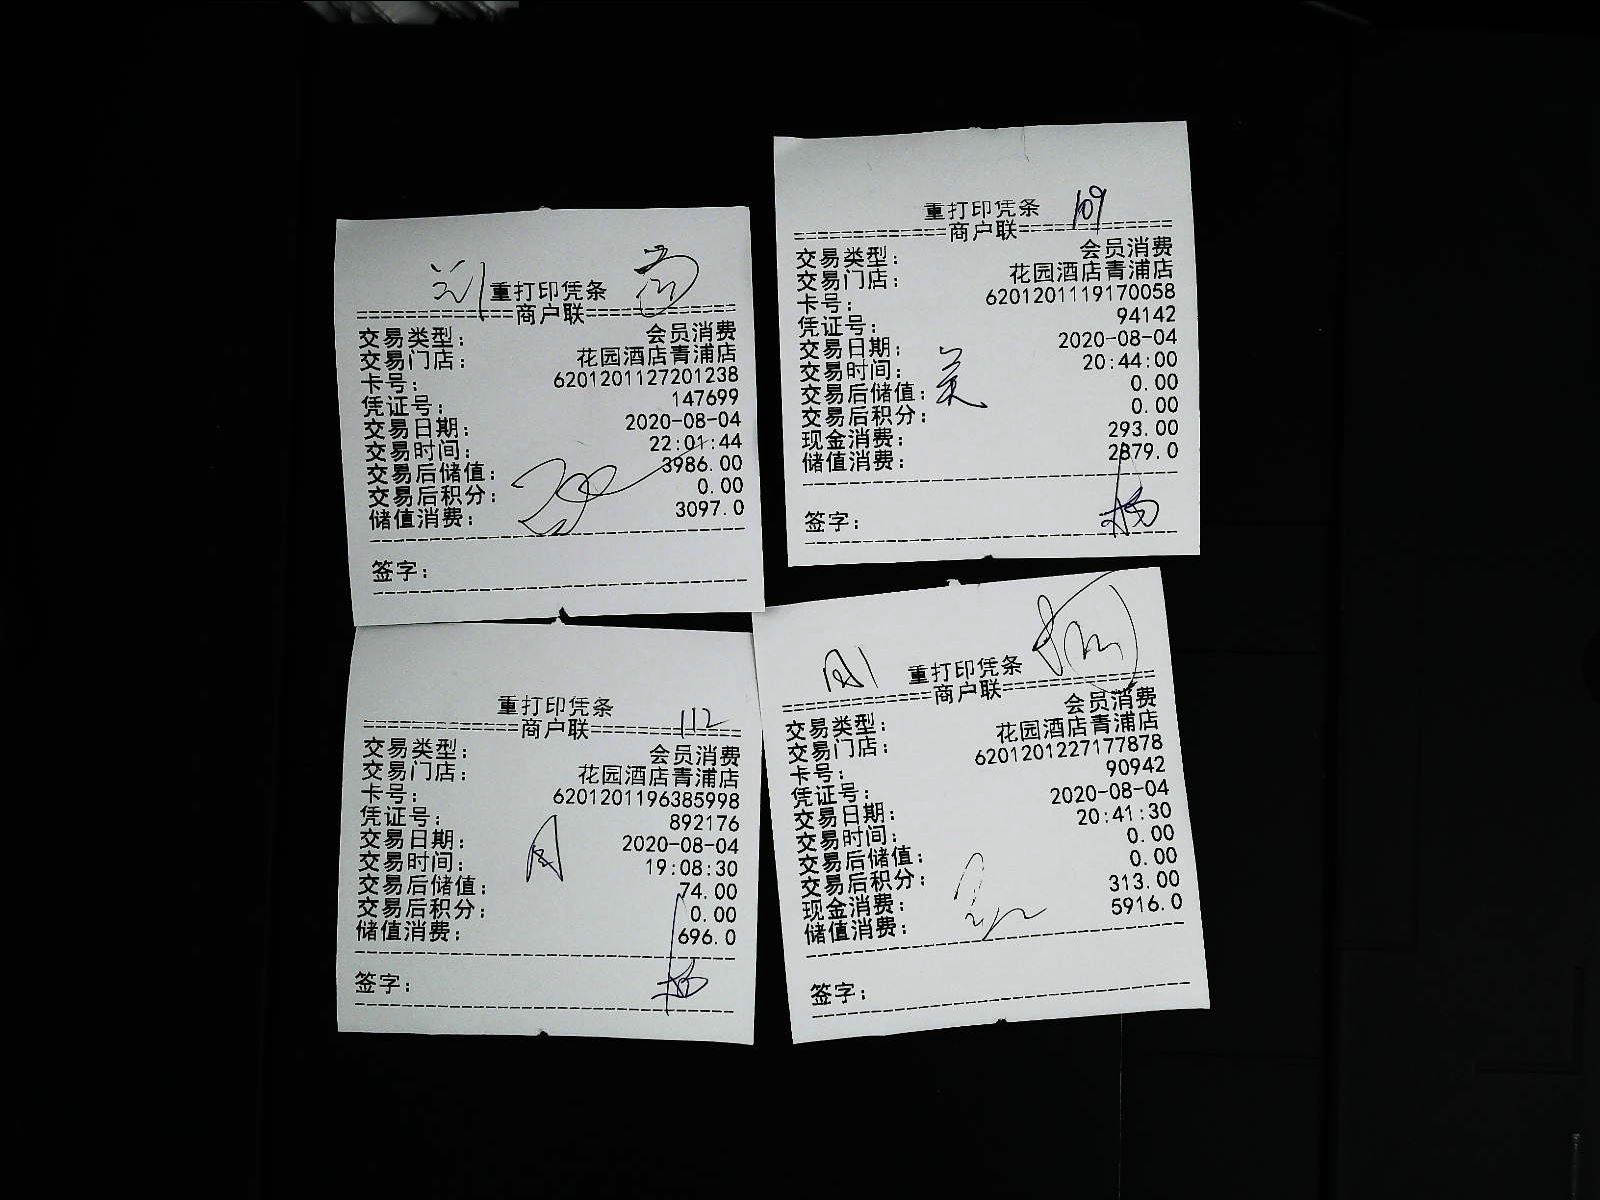 重打印凭条
============商户联============
交易类型： 会员消费
交易门店： 花园酒店青浦店
卡号： 6201201127201238
凭证号： 147699
交易日期： 2020-08-04
交易时间： 22:01:44
交易后储值： 3986.00
交易后积分： 0.00
储值消费： 3097.0
签字：
重打印凭条 109
============商户联============
交易类型： 会员消费
交易门店： 花园酒店青浦店
卡号： 6201201119170058
凭证号： 94142
交易日期： 2020-08-04
交易时间： 20:44:00
交易后储值： 0.00
交易后积分： 0.00
现金消费： 293.00
储值消费： 2879.0
签字：
重打印凭条
112
============商户联============
交易类型： 会员消费
交易门店： 花园酒店青浦店
卡号： 6201201196385998
凭证号： 892176
交易日期： 2020-08-04
交易时间： 19:08:30
交易后储值： 74.00
交易后积分： 0.00
储值消费： 696.0
签字：
重打印凭条
============商户联============
交易类型： 会员消费
交易门店： 花园酒店青浦店
卡号： 6201201227177878
凭证号： 90942
交易日期： 2020-08-04
交易时间： 20:41:30
交易后储值： 0.00
交易后积分： 0.00
现金消费： 313.00
储值消费： 5916.0
签字：